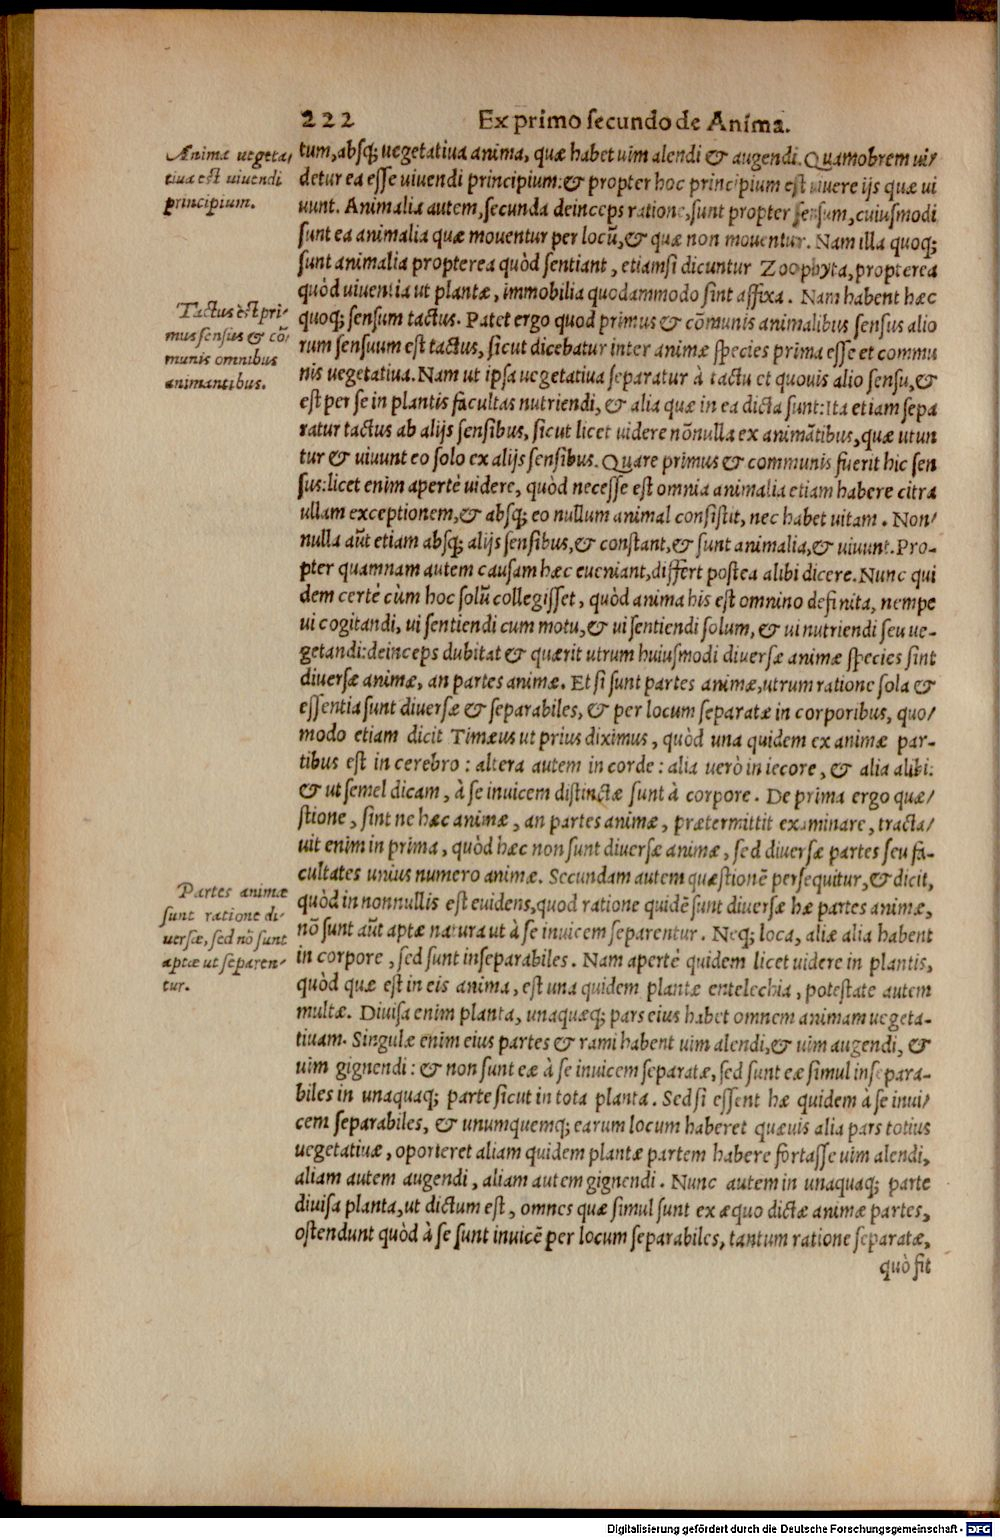 222 Ex primo secundo de Anima.
Animæ uegeta/
tiua est uiuendi
principium.
tum, absq; uegetatiua anima, quæ habet uim alendi & augendi. Quamobrem ui/
detur ea esse uiuendi principium: & propter hoc principium est uiuere ijs quæ ui
uunt. Animalia autem, secunda deinceps ratione, sunt propter sensum, cuiusmodi
sunt ea animalia quæ mouentur per locũ, & quæ non mouentur. Nam illa quoq;
sunt animalia propterea quòd sentiant, etiamsi dicuntur Zoophyta, propterea
quòd uiuentia ut plantæ, immobilia quodammodo sint affixa. Nam habent hæc
Tactus est pri-
mus sensus & cõ/
munis omnibus
animantibus.
quoq; sensum tactus. Patet ergo quod primus & cõmunis animalibus sensus alio
rum sensuum est tactus, sicut dicebatur inter animæ species prima esse et commu
nis uegetatiua. Nam ut ipsa uegetatiua separatur à tactu et quouis alio sensu, &
est per se in plantis facultas nutriendi, & alia quæ in ea dicta sunt: Ita etiam sepa
ratur tactus ab alijs sensibus, sicut licet uidere nõnulla ex animãtibus, quæ utun
tur & uiuunt eo solo ex alijs sensibus. Quare primus & communis fuerit hic sen
sus: licet enim apertè uidere, quòd necesse est omnia animalia etiam habere citra
ullam exceptionem, & absq; eo nullum animal consistit, nec habet uitam. Non/
nulla aũt etiam absq; alijs sensibus, & constant, & sunt animalia, & uiuunt. Pro-
pter quamnam autem causam hæc eueniant, differt postea alibi dicere. Nunc qui
dem certè cùm hoc solũ collegisset, quòd anima his est omnino definita, nempe
ui cogitandi, ui sentiendi cum motu, & ui sentiendi solum, & ui nutriendi seu ue-
getandi: deinceps dubitat & quærit utrum huiusmodi diuersæ animæ species sint
diuersæ animæ, an partes animæ. Et si sunt partes animæ, utrum ratione sola &
essentia sunt diuersæ & separabiles, & per locum separatæ in corporibus, quo/
modo etiam dicit Timæus ut prius diximus, quòd una quidem ex animæ par-
tibus est in cerebro: altera autem in corde: alia uerò in iecore, & alia alibi:
& ut semel dicam, à se inuicem distinctæ sunt à corpore. De prima ergo quæ/
stione, sint ne hæc animæ, an partes animæ, prætermittit examinare, tracta/
uit enim in prima, quòd hæc non sunt diuersæ animæ, sed diuersæ partes seu fa-
cultates unius numero animæ. Secundam autem quæstionẽ persequitur, & dicit,
Partes animæ
sunt ratione di/
uersæ, sed nõ sunt
aptæ ut separen-
tur.
quòd in nonnullis est euidens, quod ratione quidẽ sunt diuersæ hæ partes animæ,
nõ sunt aũt aptæ natura ut à se inuicem separentur. Neq; loca, aliæ alia habent
in corpore, sed sunt inseparabiles. Nam apertè quidem licet uidere in plantis,
quòd quæ est in eis anima, est una quidem plantæ entelechia, potestate autem
multæ. Diuisa enim planta, unaquæq; pars eius habet omnem animam uegeta-
tiuam. Singulæ enim eius partes & rami habent uim alendi, & uim augendi, &
uim gignendi: & non sunt eæ à se inuicem separatæ, sed sunt eæ simul insepara-
biles in unaquaq; parte sicut in tota planta. Sed si essent hæ quidem à se inui/
cem separabiles, & unumquemq; earum locum haberet quæuis alia pars totius
uegetatiuæ, oporteret aliam quidem plantæ partem habere fortasse uim alendi,
aliam autem augendi, aliam autem gignendi. Nunc autem in unaquaq; parte
diuisa planta, ut dictum est, omnes quæ simul sunt ex æquo dictæ animæ partes,
ostendunt quòd à se sunt inuicẽ per locum separabiles, tantum ratione separatæ,
quò fit
Digitalisierung gefördert durch die Deutsche Forschungsgemeinschaft - DFG